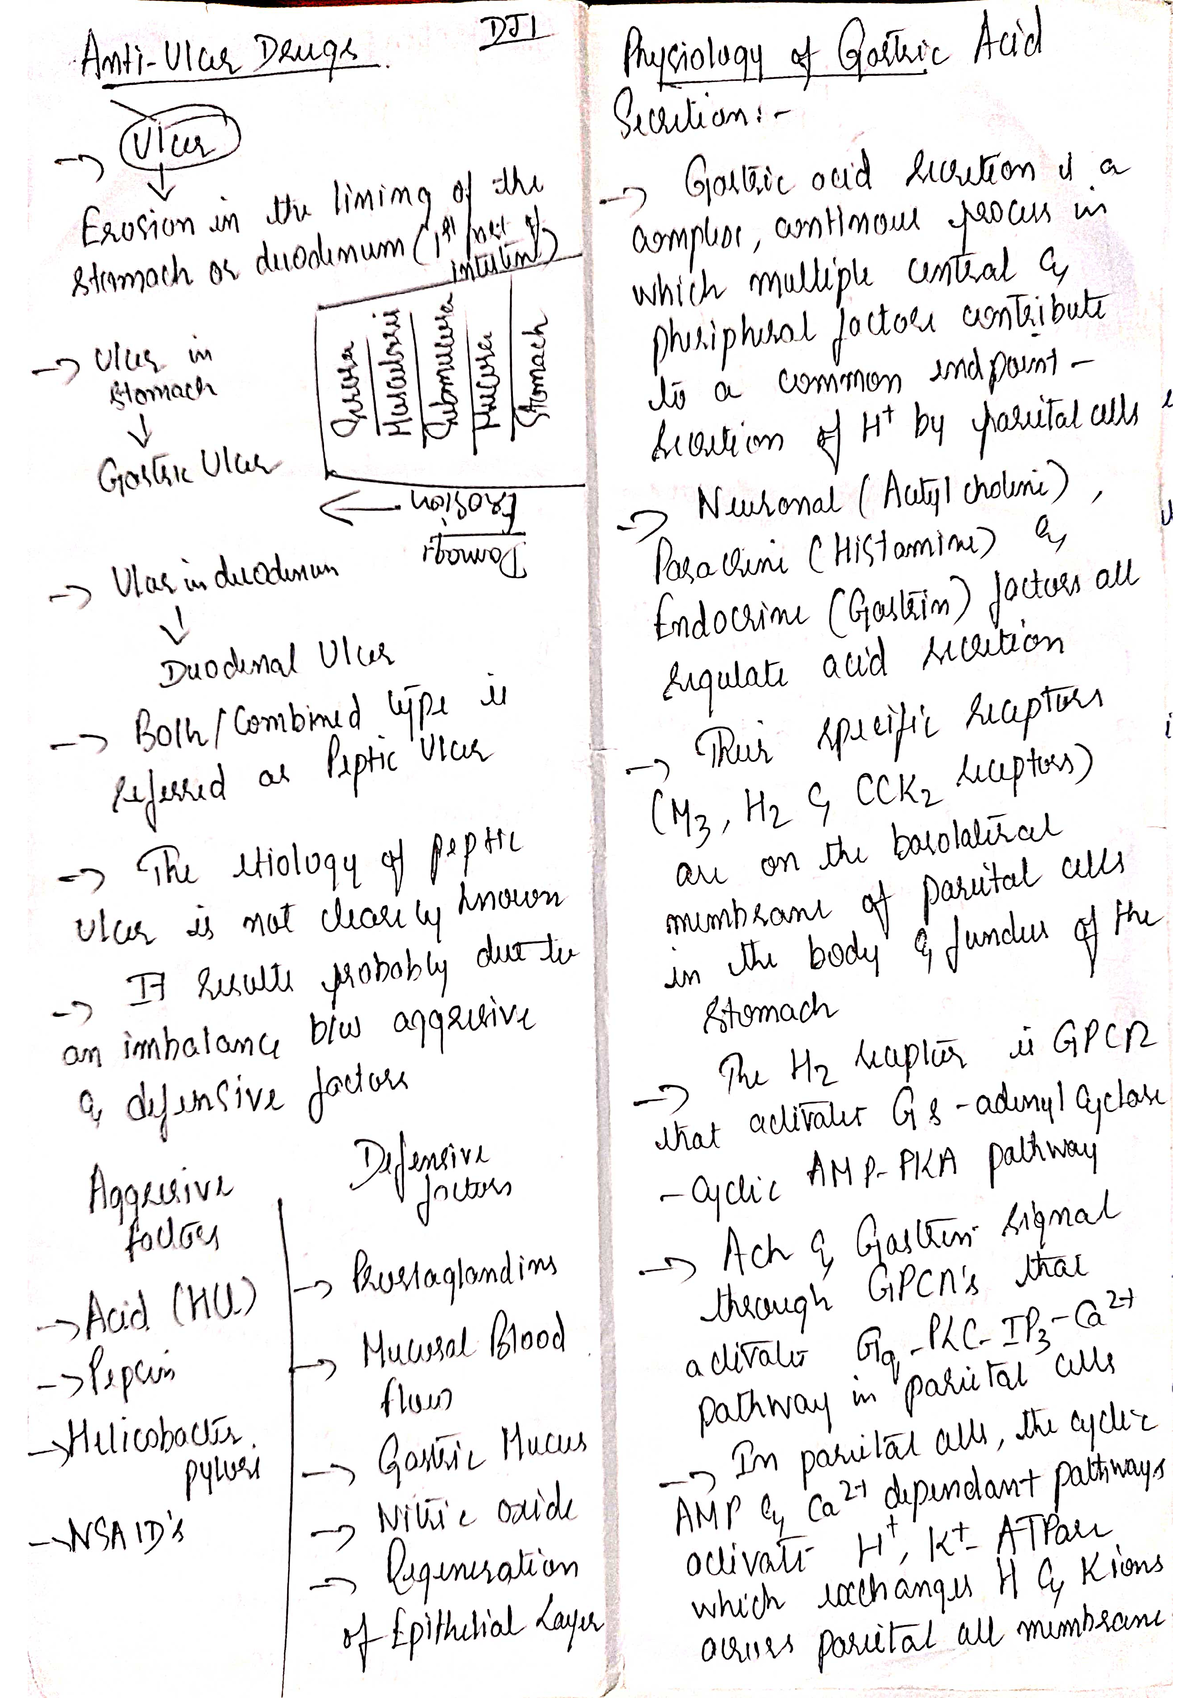 Anti-Ulcer Drugs
DJ1
→ Ulcer
Erosion in the lining of the
stomach or duodenum (1st part of
intestine)
→ Ulcer in
stomach
Gastric Ulcer
Serosa
Muscularis
Submucosa
Mucosa
Stomach
Erosion
Damage
→ Ulcer in duodenum
Duodenal Ulcer
→ Both/Combined type is
referred as Peptic Ulcer
→ The etiology of peptic
ulcer is not clearly known
→ It results probably due to
an imbalance b/w aggressive
& defensive factors
Aggressive
factors
→ Acid (HCl)
→ Pepsin
→ Helicobacter
pylori
→ NSAID's
Defensive
factors
→ Prostaglandins
→ Mucosal Blood
flow
→ Gastric Mucus
→ Nitric oxide
→ Regeneration
of Epithelial Layer
Physiology of Gastric Acid
Secretion:-
→ Gastric acid secretion is a
complex, continous process in
which multiple central &
pheripheral factors contribute
to a common endpoint -
secretion of H+ by parietal cells
→ Neuronal (Acetyl choline),
Paracrine (Histamine) &
Endocrine (Gastrin) factors all
regulate acid secretion
→ Their specific receptors
(M3, H2 & CCK2 receptors)
are on the basolateral
membrane of parietal cells
in the body & fundus of the
stomach
→ The H2 receptor is GPCR
that activates Gs-adenyl cyclase
- cyclic AMP-PKA pathway
→ Ach & Gastrin signal
through GPCR's that
activates Gq-PLC-IP3-Ca2+
pathway in parietal cells
→ In parietal cells, the cyclic
AMP & Ca2+ dependant pathways
activate H+, K+- ATPase
which exchanges H & K ions
across parietal cell membrane